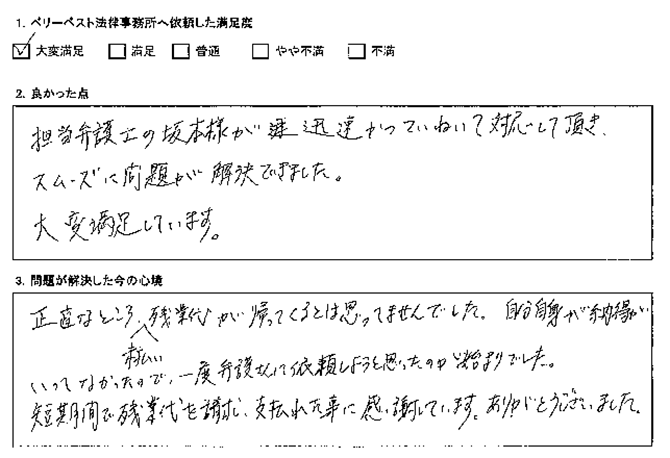 1. ベリーベスト法律事務所へ依頼した満足度
大変満足 満足 普通 やや不満 不満
2. 良かった点
担当弁護士の坂本様が 迅速かつていねいて対応して頂き、
スムーズに問題が解決できました。
大変満足しています。
3. 問題が解決した今の心境
正直なところ、残業代が帰ってくるとは思ってませんでした。自分自身が納得が
未払い
いってなかったので、一度弁護士さんに依頼しようと思ったのが始まりでした。
短期間で残業代を請求し、支払れた事に感謝しています。ありがとうございました。